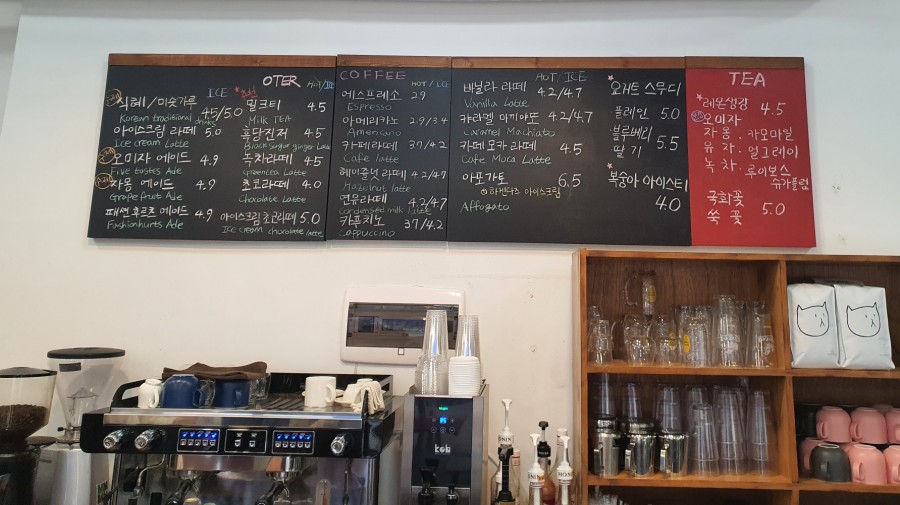 OTER
ICE
HOT/ICE
식혜/미숫가루 4.5/5.0
Korean traditional drinks
아이스크림 라떼 5.0
Ice cream Latte
오미자 에이드 4.9
Five tastes Ade
자몽 에이드 4.9
Grapefruit Ade
패션후르츠 에이드 4.9
Fashionhurts Ade
*추천
밀크티 4.5
Milk TEA
흑당진저 4.5
Black sugar ginger Latte
녹차라떼 4.5
Greentea Latte
초코라떼 4.0
Chocolate Latte
아이스크림초코라떼 5.0
ICE cream chocolate latte
COFFEE
HOT/ICE
에스프레소 2.9
Espresso
아메리카노 2.9/3.4
Americano
카페라떼 3.7/4.2
Cafe latte
헤이즐넛 라떼 4.2/4.7
Hazelnut latte
연유라떼 4.2/4.7
condensed milk latte
카푸치노 3.7/4.2
Cappuccino
HOT/ICE
바닐라 라떼 4.2/4.7
Vanilla Latte
카라멜 마끼야또 4.2/4.7
Caramel Machiato
카페모카 라떼 4.5
Cafe Moca Latte
아포가토 6.5
하겐다즈 아이스크림
Affogato
*
요거트 스무디
플레인 5.0
블루베리
딸기 5.5
*
복숭아 아이스티
4.0
TEA
*레몬생강 4.5
오미자
자몽. 카모마일
유자. 얼그레이
녹차. 루이보스
슈가플럼
국화꽃
쑥꽃 5.0